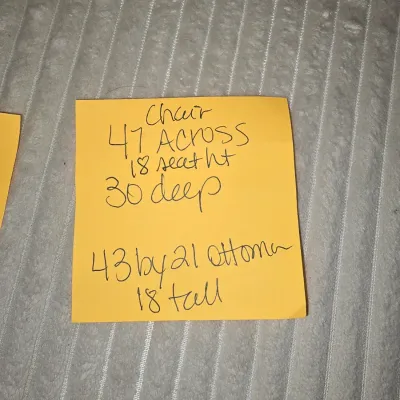 Chair
47 Across
18 seat ht
30 deep
43 by 21 ottoman
18 tall